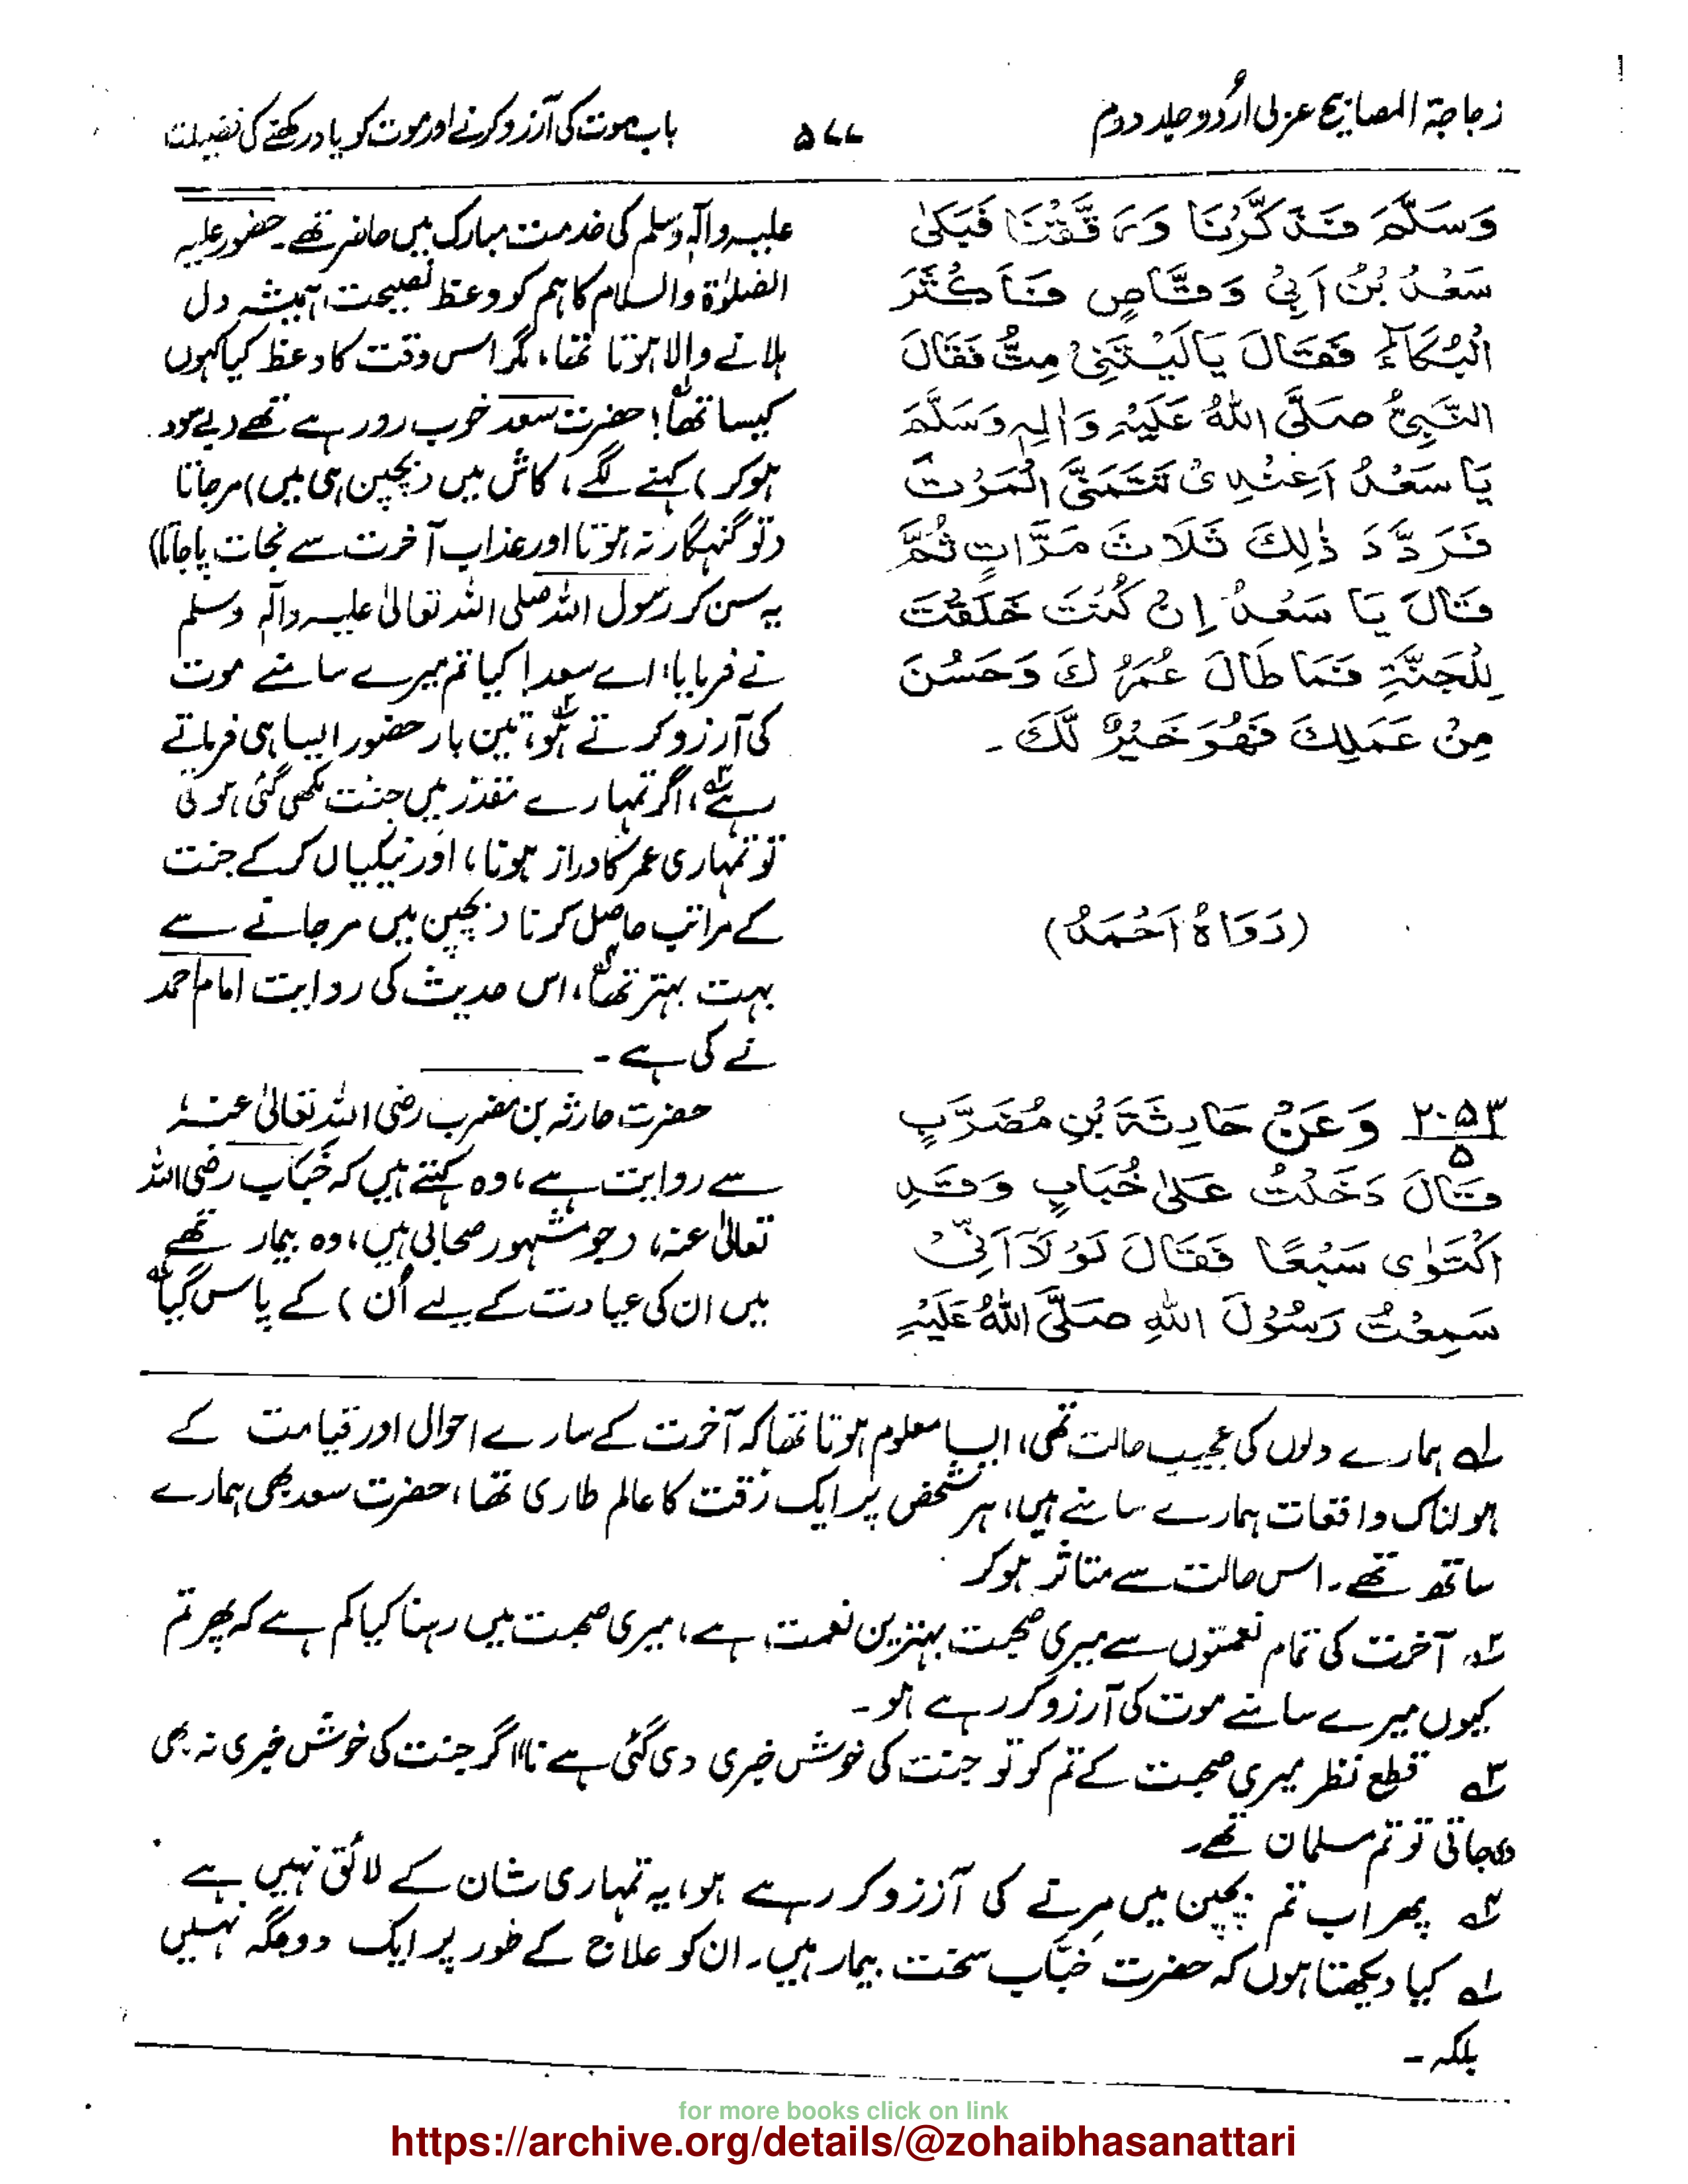 زجاجۃ المصابیح عربی اُردو جلد دوم
۵۷۷
باب موت کی آرزو کرنے اور موت کو یاد رکھنے کی فضیلت
وَسَلَّمَ فَذَكَّرَنَا وَرَقَّقَنَا فَبَكٰى
سَعْدُ بْنُ اَبِيْ وَقَّاصٍ فَاَكْثَرَ
الْبُكَاءَ فَقَالَ يَا لَيْتَنِيْ مِتُّ فَقَالَ
النَّبِيُّ صَلَّى اللهُ عَلَيْهِ وَاٰلِهٖ وَسَلَّمَ
يَا سَعْدُ اَعِنْدِيْ تَتَمَنَّى الْمَوْتَ
فَرَدَّدَ ذٰلِكَ ثَلَاثَ مَرَّاتٍ ثُمَّ
قَالَ يَا سَعْدُ اِنْ كُنْتَ خُلِقْتَ
لِلْجَنَّةِ فَمَا طَالَ عُمْرُكَ وَحَسُنَ
مِنْ عَمَلِكَ فَهُوَ خَيْرٌ لَّكَ ۔
(رَوَاهُ اَحْمَدُ)
۲۰۵۳ وَعَنْ حَارِثَةَ بْنِ مُضَرَّبٍ
۵
قَالَ دَخَلْتُ عَلٰى خُبَابٍ وَقَدِ
اكْتَوٰى سَبْعًا فَقَالَ لَوْلَا اَنِّيْ
سَمِعْتُ رَسُوْلَ اللهِ صَلَّى اللهُ عَلَيْهِ
علیہ وآلہ وسلم کی خدمت مبارک میں حاضر تھے۔ حضور علیہ
الصلوٰۃ والسلام کا ہم کو وعظ نصیحت ہمیشہ دل
ہلانے والا ہوتا تھا، مگر اس وقت کا وعظ کیا کہوں
کیسا تھا! حضرت سعد خوب رو رہے تھے (بے خود
ہو کر) کہنے لگے، کاش میں (بچپن ہی میں) مر جاتا
(تو گنہگار نہ ہوتا اور عذاب آخرت سے نجات پا جاتا)
یہ سن کر رسول اللہ صلی اللہ تعالیٰ علیہ وآلہ وسلم
نے فرمایا: اے سعد! کیا تم میرے سامنے موت
کی آرزو کرتے ہو، تین بار حضور ایسا ہی فرماتے
رہے، اگر تمہارے مقدر میں جنت لکھی گئی ہوتی
تو تمہاری عمر کا دراز ہونا، اور نیکیاں کر کے جنت
کے مراتب حاصل کرنا (بچپن میں مر جانے سے
بہت بہتر تھا، اس حدیث کی روایت امام احمد
نے کی ہے۔
حضرت حارثہ بن مضرب رضی اللہ تعالیٰ عنہ
سے روایت ہے، وہ کہتے ہیں کہ خَبّاب رضی اللہ
تعالیٰ عنہ، (جو مشہور صحابی ہیں، وہ بیمار تھے
میں ان کی عیادت کے لیے اُن) کے پاس گیا
لہ ہمارے دلوں کی عجیب حالت تھی، ایسا معلوم ہوتا تھا کہ آخرت کے سارے احوال اور قیامت کے
ہولناک واقعات ہمارے سامنے ہیں، ہر شخص پر ایک رقت کا عالم طاری تھا، حضرت سعد بھی ہمارے
ساتھ تھے۔ اس حالت سے متاثر ہو کر
۲ہ آخرت کی تمام نعمتوں سے میری صحبت بہترین نعمت ہے، میری صحبت میں رہنا کیا کم ہے کہ پھر تم
کیوں میرے سامنے موت کی آرزو کر رہے ہو۔
۳ہ قطع نظر میری صحبت کے تم کو تو جنت کی خوش خبری دی گئی ہے نا! اگر جنت کی خوش خبری نہ بھی
دی جاتی تو تم مسلمان تھے۔
۴ہ پھر اب تم بچپن میں مرنے کی آرزو کر رہے ہو، یہ تمہاری شان کے لائق نہیں ہے
لہ کیا دیکھتا ہوں کہ حضرت خبّاب سخت بیمار ہیں۔ ان کو علاج کے طور پر ایک دو جگہ نہیں
بلکہ۔
for more books click on link
https://archive.org/details/@zohaibhasanattari